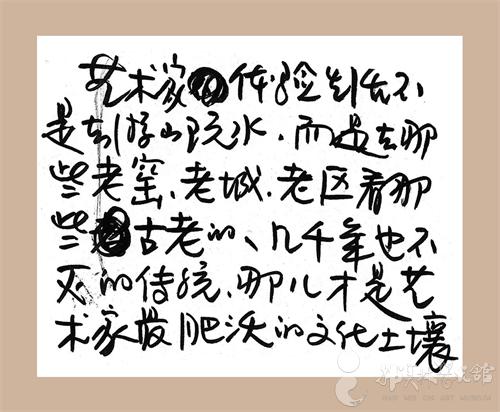 艺术家体验生活不
是去游山玩水，而是去那
些老窑、老城、老区看那
些古老的、几千年也不
灭的传统，那儿才是艺
术家最肥沃的文化土壤
韩美林艺术馆
HAN MEI LIN ART MUSEUM